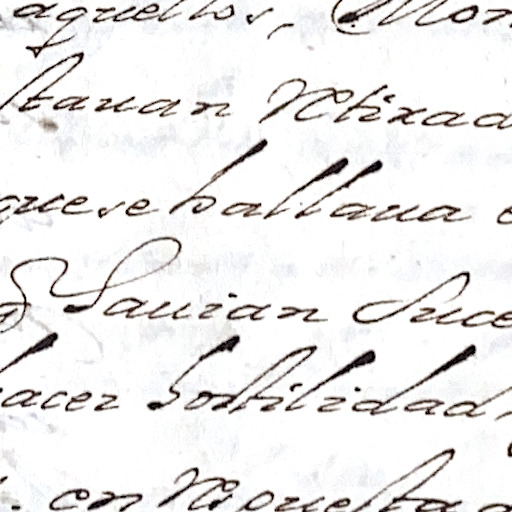 aquellos, Mon
stauan Retirad
que se hallaua
q̃ hauian Suce
hacer hostilidad,
. en Respuesta a